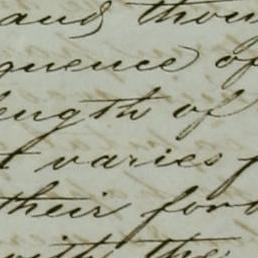 and thou
quence of
length of
t varies f
their for
with the